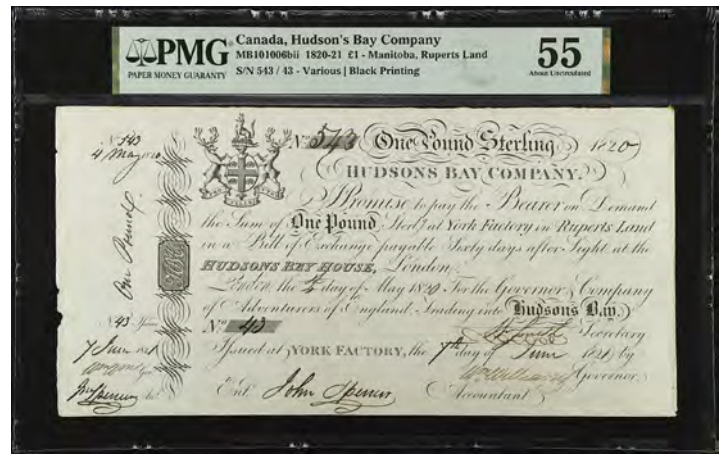 PMG
PAPER MONEY GUARANTY
Canada, Hudson's Bay Company
MB101006bii 1820-21 £1 - Manitoba, Ruperts Land
S/N 543 / 43 - Various | Black Printing
55
About Uncirculated
No. 543
4 May 1820
One Pound
No. 543 One Pound Sterling 1820
HUDSONS BAY COMPANY.
I Promise to pay the Bearer on Demand
the Sum of One Pound Sterlg. at York Factory in Ruperts Land
in a Bill of Exchange payable Sixty days after Sight at the
HUDSONS BAY HOUSE, London.
London, the 4 day of May 1820 For the Governor & Company
of Adventurers of England, Trading into Hudsons Bay.
No. 43
Secretary
Issued at YORK FACTORY, the 7th day of June 1821 by
Governor.
Entd. John Spencer Accountant
43
7 June 1821